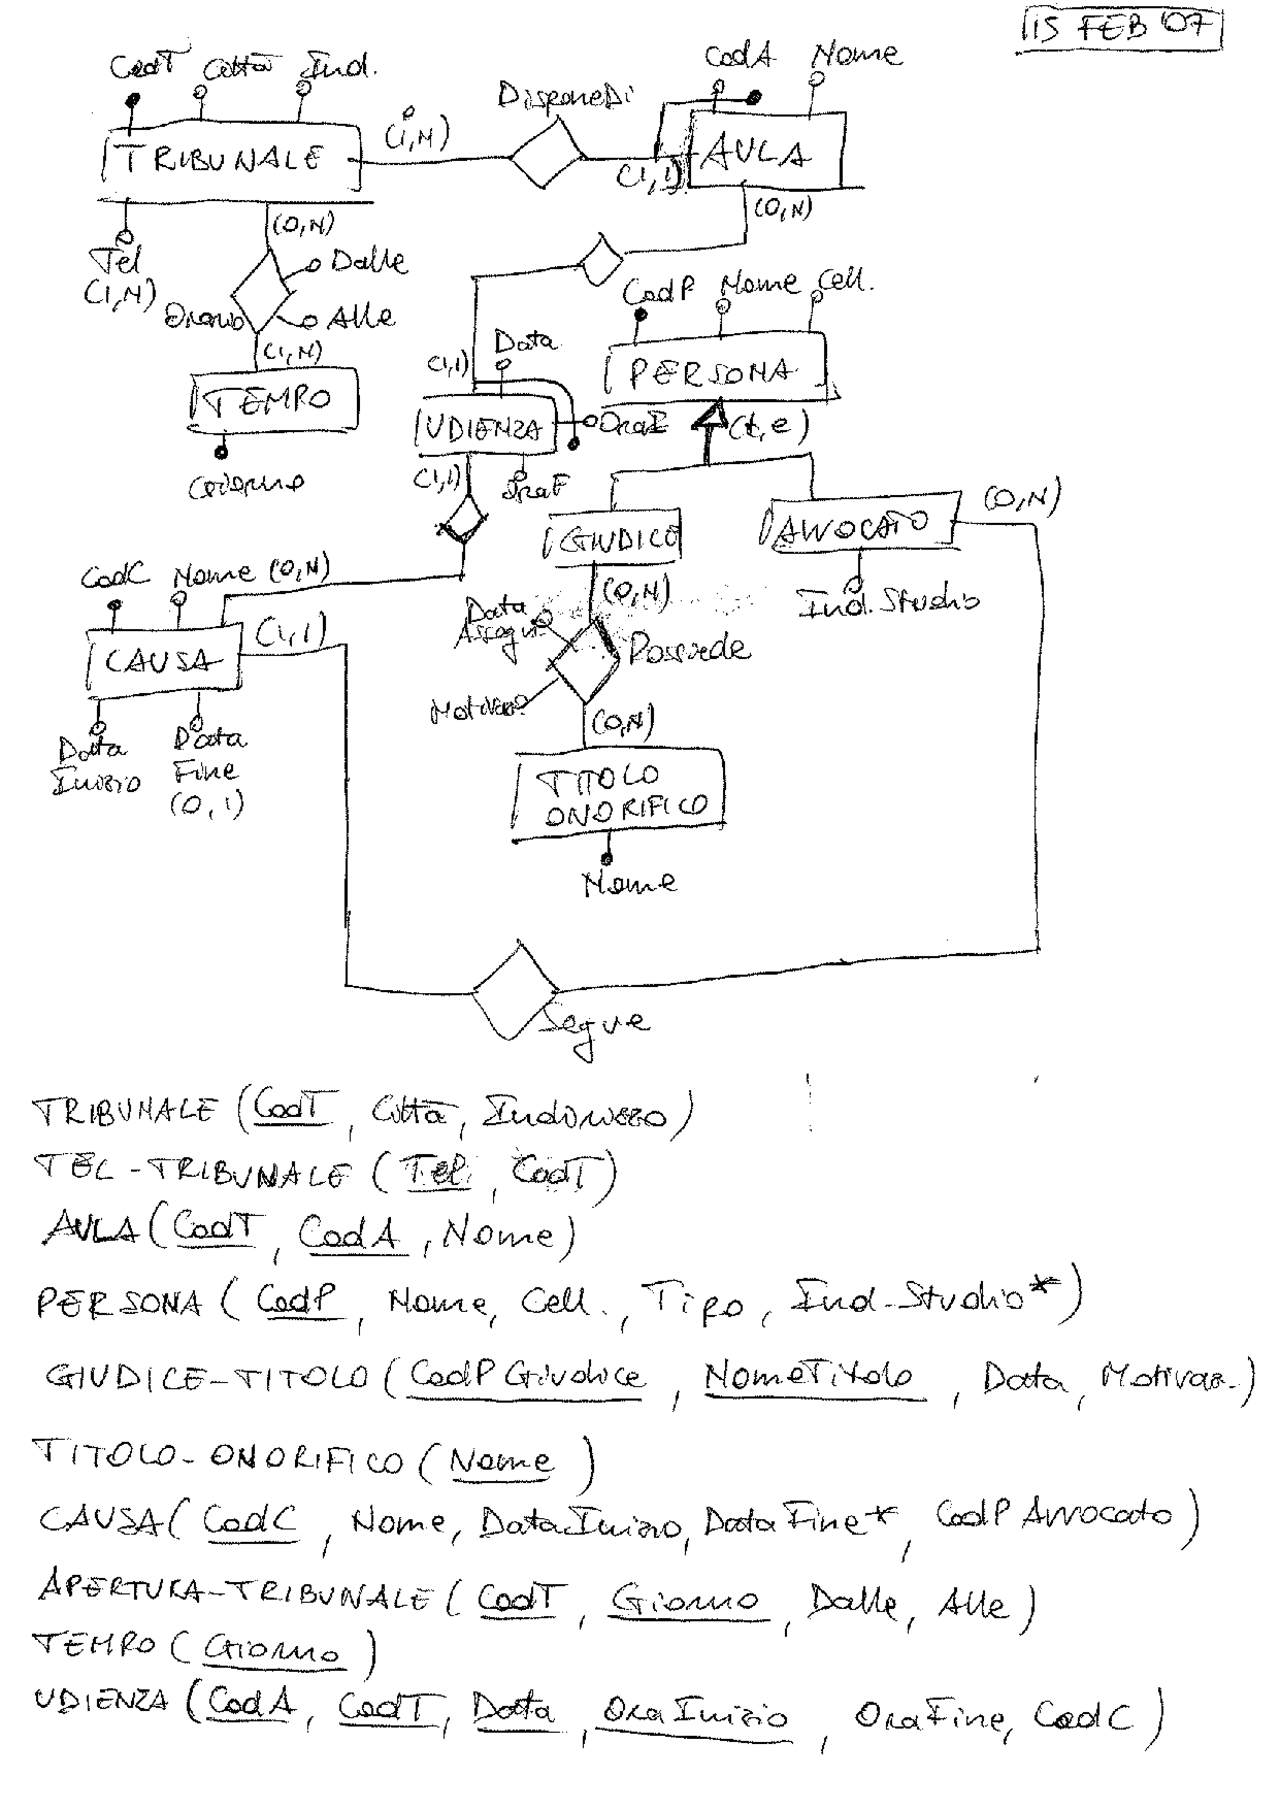 15 FEB '07
CodT Città Ind.
CodA Nome
DisponeDi
TRIBUNALE
(1,N)
(1,1)
AULA
(0,N)
(0,N)
Tel
(1,N)
Dalle
Orario
Alle
CodP Nome Cell.
(1,N)
TEMPO
Giorno
Data
(1,1)
PERSONA
UDIENZA
OraI
(t,e)
(1,1)
OraF
GIUDICE
AVVOCATO
(0,N)
Ind. Studio
CodC Nome (0,N)
(0,N)
Data
Assegn.
Possiede
CAUSA
(1,1)
Motivaz.
(0,N)
Data
Inizio
Data
Fine
(0,1)
TITOLO
ONORIFICO
Nome
Segue
TRIBUNALE (CodT, Città, Indirizzo)
TEL-TRIBUNALE (Tel, CodT)
AULA (CodT, CodA, Nome)
PERSONA (CodP, Nome, Cell., Tipo, Ind-Studio*)
GIUDICE-TITOLO (CodPGiudice, NomeTitolo, Data, Motivaz.)
TITOLO-ONORIFICO (Nome)
CAUSA (CodC, Nome, DataInizio, DataFine*, CodPAvvocato)
APERTURA-TRIBUNALE (CodT, Giorno, Dalle, Alle)
TEMPO (Giorno)
UDIENZA (CodA, CodT, Data, OraInizio, OraFine, CodC)